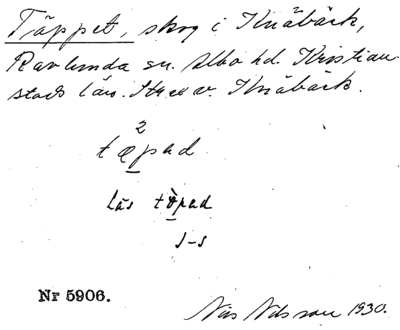 Täppet, skog i Knäbäck,
Ravlunda sn. Albo hd. Kristian-
stads län. Strax v. Knäbäck.
2
tæpad
Läs tòpad
s-s
Nr 5906.
Nils Nilsson 1930.